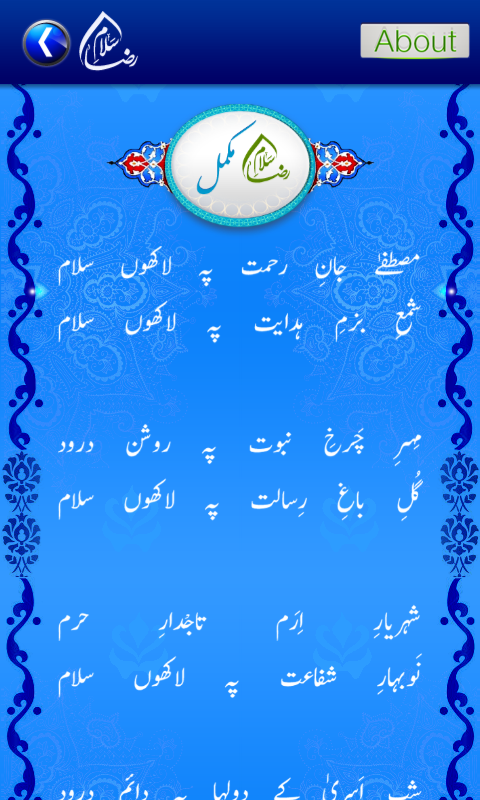 سلام رضا
About
سلام رضا مکمل
مصطفےٰ جانِ رحمت پہ لاکھوں سلام
شمعِ بزمِ ہدایت پہ لاکھوں سلام
مِہرِ چَرخِ نبوت پہ روشن درود
گُلِ باغِ رِسالت پہ لاکھوں سلام
شہریارِ اِرَم تاجْدارِ حرم
نَوبہارِ شفاعت پہ لاکھوں سلام
شبِ اَسریٰ کے دولہا پہ دائم درود